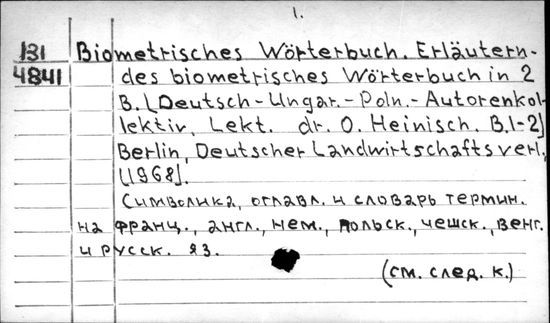 1.
131 Biometrisches Wörterbuch. Erläutern-
4841 des biometrisches Wörterbuch in 2
B. [Deutsch-Ungar.-Poln.-Autorenkol-
lektiv, Lekt. dr. O. Heinisch. B.1-2]
Berlin, Deutscher Landwirtschaftsverl.,
[1968].
Символика, оглавл. и словарь термин.
на франц., англ., нем., польск., чешск., венг.
и русск. яз.
(см. след. к.)